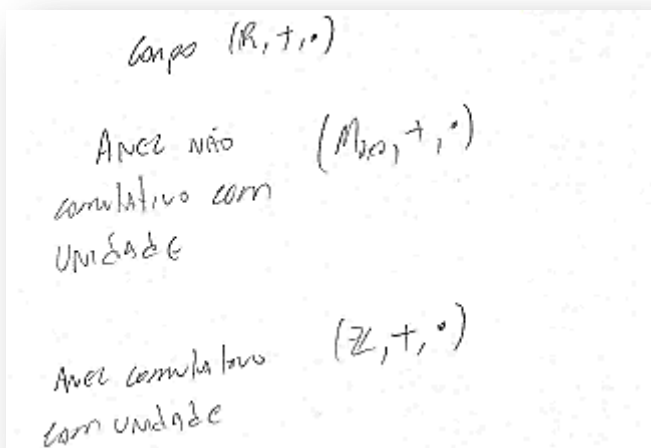 Corpo (ℝ, +, ·)
ANEL NÃO (M₂ₓ₂, +, ·)
comutativo com
UNIdAdE
Anel comutativo (ℤ, +, ·)
com unidade